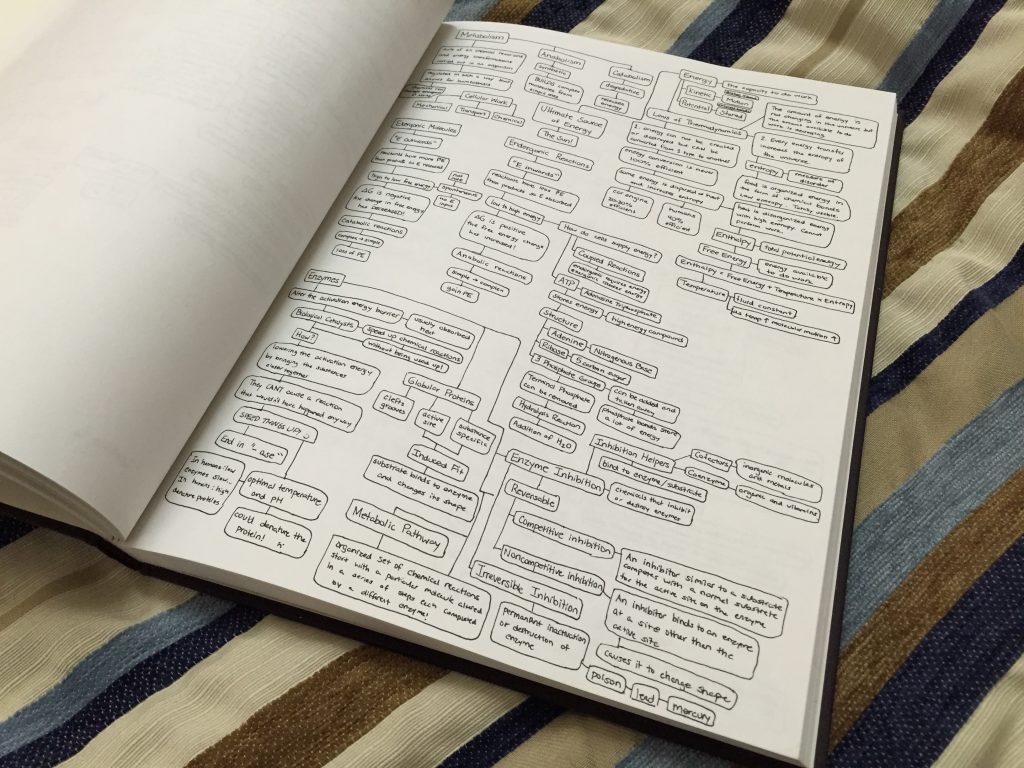 Metabolism
sum of all chemical reactions
and energy transformations
carried out in an organism
regulated in such a way that
allows for homeostasis
Cellular Work
Mechanical
Transport
Chemical
Anabolism
synthetic
Builds complex
Catabolism
degradative
Ultimate Source
of Energy
The Sun!
Energy
the capacity to do work
Kinetic
Motion
Potential
Stored
Laws of Thermodynamics
The amount of energy is
not changing in the universe but
the energy available to do
work is decreasing
1. Energy can not be created
or destroyed but can be
converted from 1 type to another
energy conversion is never
100% efficient
some energy is dispersed as heat
and increases entropy
car engine
20-30%
efficient
humans
40%
efficient
2. Every energy transfer
increases the entropy of
the universe
entropy
measure of
disorder
food is organized energy
in the form of chemical bonds.
Low entropy. Totally usable.
heat is disorganized energy
with high entropy. Cannot
perform work.
Enthalpy
total potential energy
Free Energy
energy available
to do work
Enthalpy = Free Energy + Temperature x Entropy
Temperature
fluid constant
as temp ↑ molecular motion ↑
Exergonic Molecules
"E outwards"
reactants have more PE
than products so E released
high to low free energy
spontaneous
no E input
ΔG is negative
b/c change in free energy
has DECREASED!
Catabolic reactions
complex → simple
loss of PE
Endergonic Reactions
"E inwards"
reactants have less PE
than products so E absorbed
low to high energy
ΔG is positive
b/c free energy change
has increased!
Anabolic reactions
simple → complex
gain PE
How do cells supply energy?
Coupled Reactions
endergonic require energy
exergonic release energy
ATP
Adenosine Triphosphate
stores energy
high energy compound
Structure
Adenine
Nitrogenous Base
Ribose
5 carbon sugar
3 Phosphate Groups
Terminal Phosphate
can be removed
can be added and
taken away
Hydrolysis Reaction
Addition of H2O
Phosphate bonds store
a lot of energy
Enzymes
Alter the activation energy barrier
usually absorbed
heat
Biological Catalysts
speed up chemical reactions
without being used up!
How?
lowering the activation energy
by bringing the substances
closer together
They CANT cause a reaction
that wouldn't have happened anyway
SPEED THINGS UP! :)
End in "-ase"
In humans: low
enzymes slow..
In humans: high
denature proteins
optimal temperature
and pH
could denature the
protein!
Globular Proteins
clefts
grooves
active
site
substance
specific
Induced Fit
substrate binds to enzyme
and changes its shape
Metabolic Pathway
Organized set of chemical reactions
start with a particular molecule altered
in a series of steps each completed
by a different enzyme!
Enzyme Inhibition
chemicals that inhibit
or destroy enzymes
Inhibition Helpers
bind to enzyme/substrate
Cofactors
inorganic molecules
and metals
Coenzyme
organic and vitamins
Reversable
Competitive inhibition
An inhibitor similar to a substrate
competes with a normal substrate
for the active site on the enzyme
Noncompetitive inhibition
An inhibitor binds to an enzyme
at a site other than the
active site
causes it to change shape
Irreversible Inhibition
permanant inactivation
or destruction of
enzyme
poison
lead
mercury